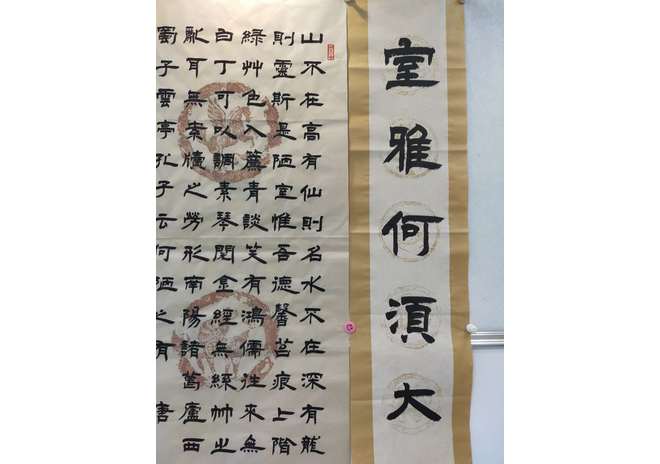 室雅何湏大
山不在高有仙則名水不在深有龍
則靈斯是陋室惟吾德馨苔痕上階
綠艸色入簾青談笑有鴻儒往來無
白丁可以調素琴閱金經無絲竹之
亂耳無案牘之勞形南陽諸葛廬西
蜀子雲亭孔子云何陋之有 唐